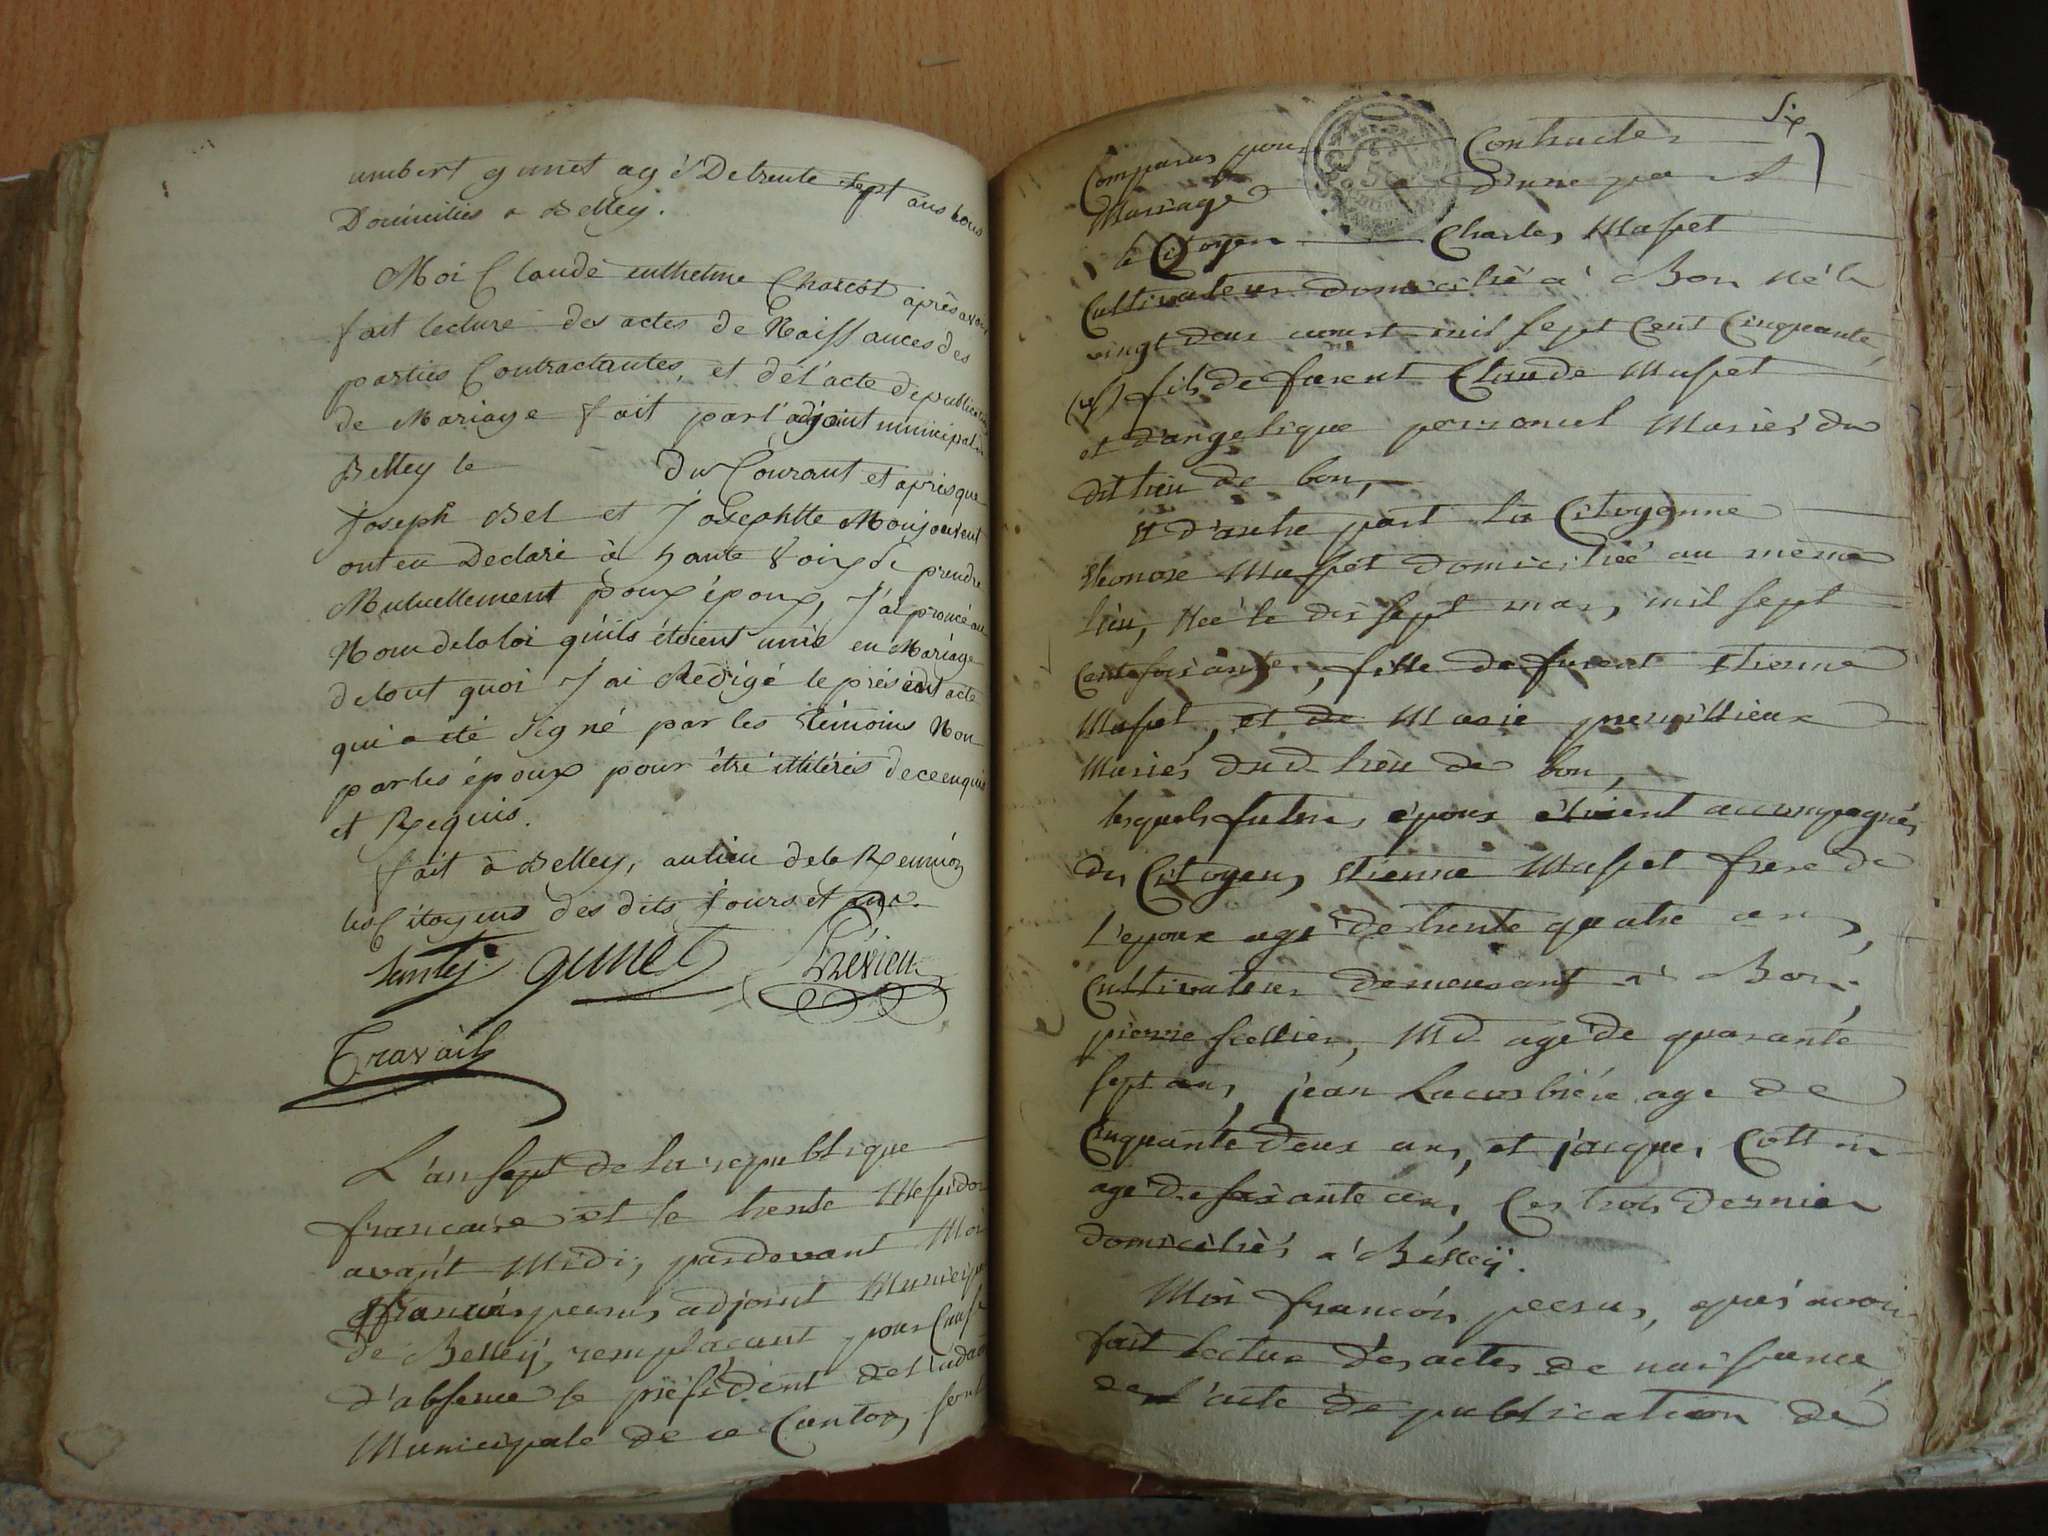 umbert gunet agé De trente sept ans tous
Domiciliés a Belley.
Moi Claude enthelme Charcot après avoir
fait lecture des actes de Naissances des
parties Contractantes, et de l'acte de publication
de Mariage fait par l'adjoint municipal de
Belley le du Courant et après que
Joseph Bel et Josephtte Monjouvent
ont eu Declaré à haute Voix se prendre
Mutuellement pour époux, J'ai prononcé au
Nom de la loi qu'ils étoient unis en Mariage
de tout quoi J'ai Rédigé le présent acte
qui a été signé par les témoins Non
par les époux pour être illitérés de ce enquis
et Requis.
fait à Belley, au lieu de la Reunion
des Citoyens des dits Jours et an.
gunet Trévieu
Travail
L'an sept de la republique
francaise et le trente Messidor
avant Midi, pardevant Moi
francois perrus, adjoint Municipal
de Belley, remplacant pour Cause
d'absence le président de l'adon
Municipale de ce Canton, sont
Six
Comparus pour Contracter
Mariage d'une part
le Citoyen Charles Masset
Cultivateur domicilié à Bon né le
vingt deux aoust mil sept Cent Cinquante
six fils de furent Claude Masset
et d'angelique personnel Mariés du
dit lieu de bon,
Et d'autre part la Citoyenne
Eleonore Masset domiciliée au même
lieu, Née le dix sept mars mil sept
Cent soixante, fille de furent Etienne
Masset, et de Marie premillieux
Mariés dud. lieu de bon,
lesquels futurs époux étoient accompagnés
des Citoyens Etienne Masset frere de
L'epoux agé de trente quatre ans,
Cultivateur demeurant à Bon,
pierre sellier, Md agé de quarante
sept ans, jean Lacorbiére age de
Cinquante deux ans, et jacques Cottin
agé de soixante ans, Ces trois dernier
domiciliés a Belley.
Moi francois perrus, après avoir
fait lecture des actes de naissance
de l'acte de publication de